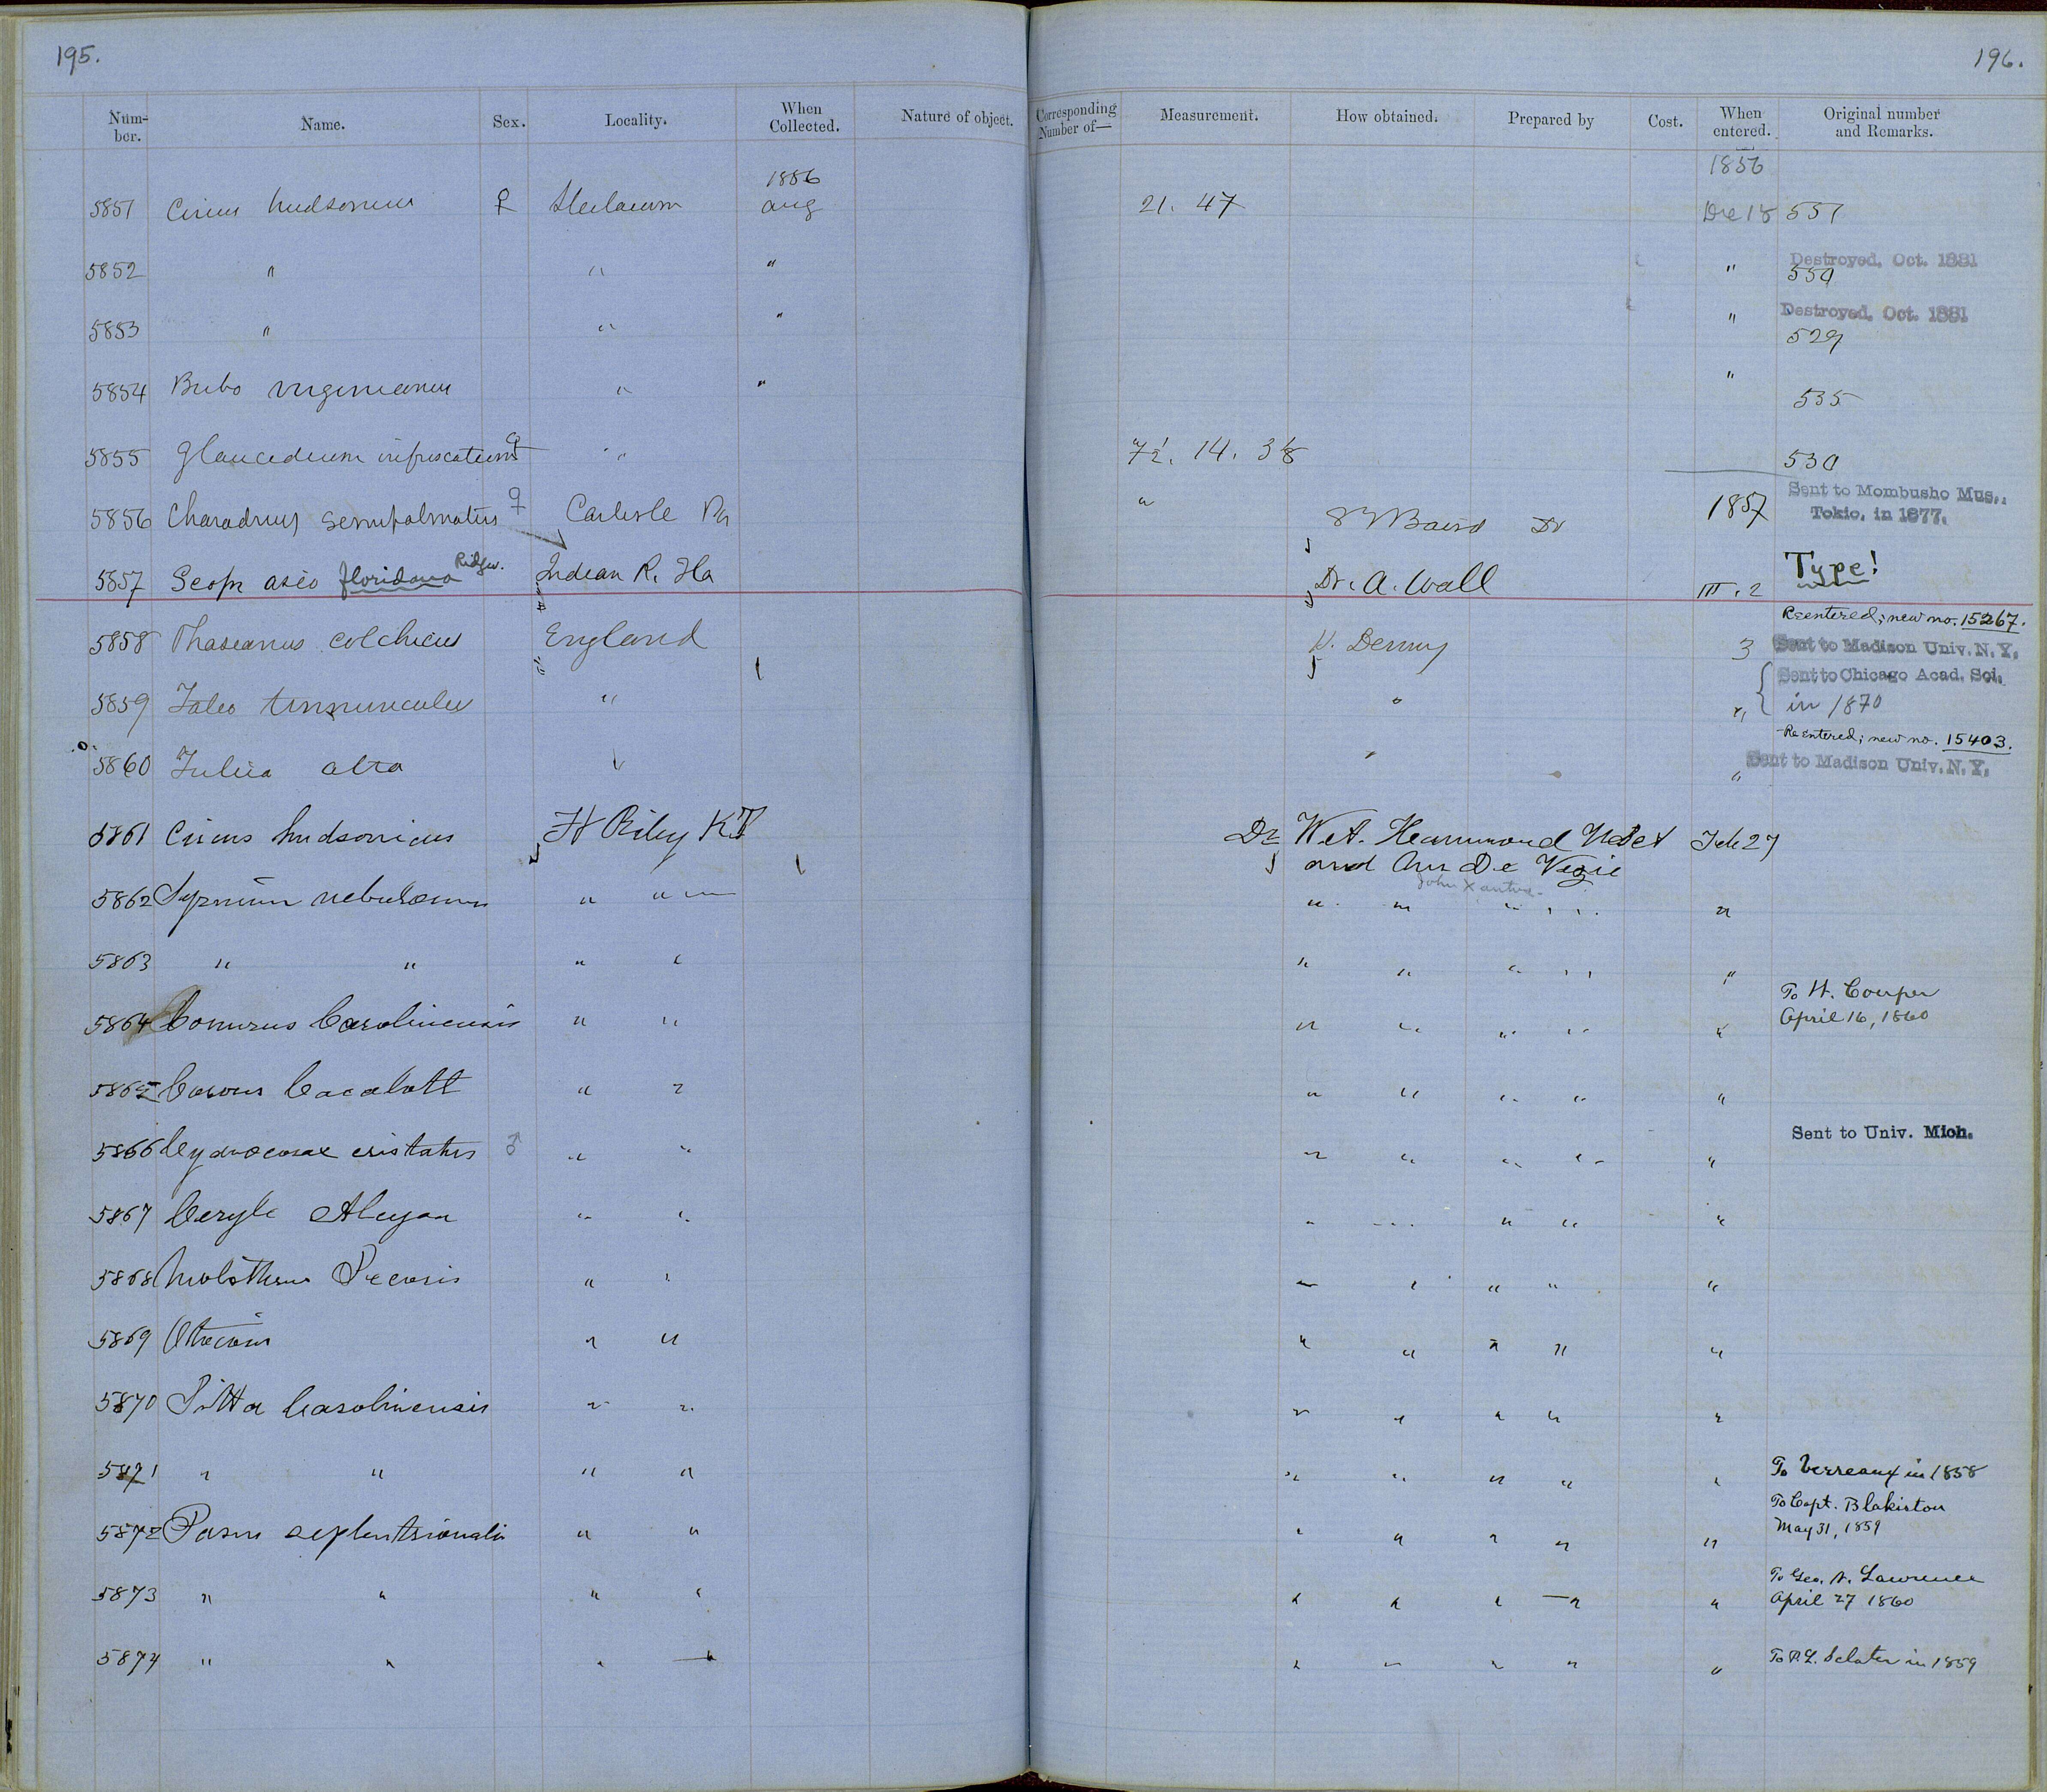 195.
196.
Num-ber. Name. Sex. Locality. When Collected. Nature of object. Corresponding Number of— Measurement. How obtained. Prepared by Cost. When entered. Original number and Remarks.
1856 1856
5851 Circus hudsonicus ♀ Steilacoom aug 21. 47 Dec 18 551
5852 " " " " Destroyed, Oct. 1881
550
5853 " " " " Destroyed, Oct. 1881
529
5854 Bubo virginianus " " " 535
5855 Glaucidium infuscatum ♀ " 7½. 14. 3⅞ 530
5856 Charadrius semipalmatus ♀ Carlisle Pa " S F Baird 1857 Sent to Mombusho Mus.,
Tokio, in 1877.
5857 Scops asio floridana Ridgw. Indian R. Fla Dr. A. Wall III. 2 Type!
Reentered; new no. 15267.
5858 Phasianus colchicus England H. Denny 3 Sent to Madison Univ. N.Y.
Sent to Chicago Acad. Sci.
5859 Falco tinnunculus " " " in 1870
Reentered; new no. 15403.
5860 Fulica atra " " Sent to Madison Univ. N.Y.
5861 Circus hudsonicus Ft Riley K.T Dr W.A. Hammond Feb 27
and De Vezie
John Xantus
5862 Syrnium nebulosum " " " " " " "
5863 " " " " " " " " "
To
April 16, 1860
5864 Conurus Carolinensis " " " " " " "
5865 Corvus Cacalotl " " " " " " "
Sent to Univ. Mich.
5866 cristatus ♂ " " " " " " "
5867 Ceryle Alcyon " " " " " " "
5868 Molothrus Pecoris " " " " " " "
5869 " " " " " " "
5870 Sitta Carolinensis " " " " " " "
5871 " " " " " " " " " To Verreaux in 1858
To Capt. Blakiston
5872 Parus septentrionalis " " " " " " " May 31, 1859
To Geo. N. Lawrence
5873 " " " " " " " " " April 27 1860
5874 " " " " " " " " " To P.L. Sclater in 1859